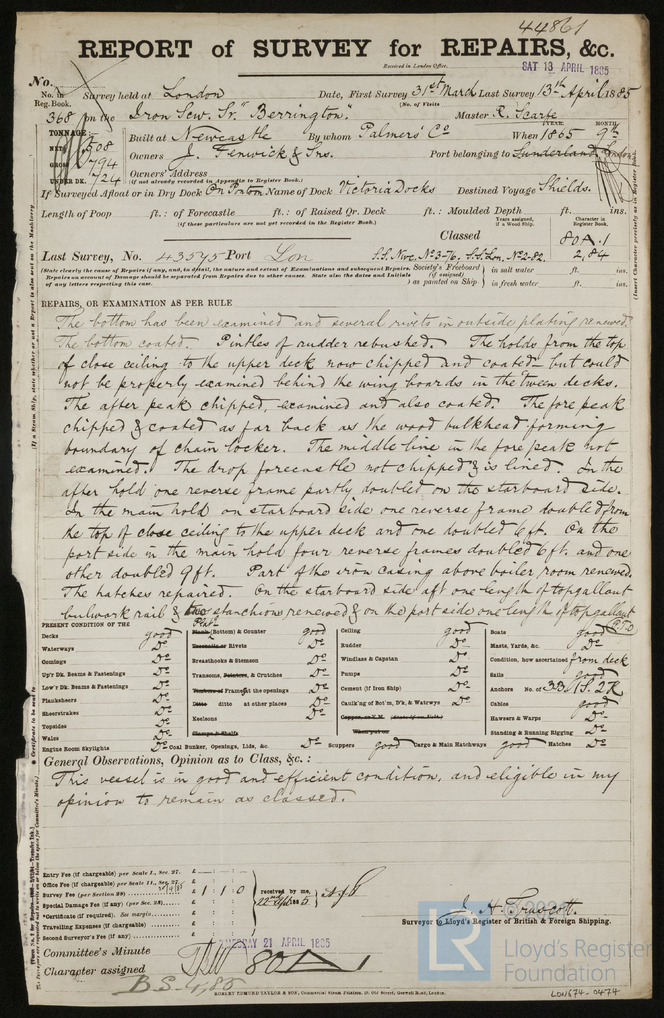 44861
REPORT of SURVEY for REPAIRS, &c.
Received in London Office, SAT 18 APRIL 1885
No.
No. in Reg. Book. Survey held at London Date, First Survey 31st March Last Survey 13th April 1885
(No. of Visits
368 on the Iron Scw. Sr. "Berrington". Master R. Scarfe
TONNAGE:— Built at Newcastle By whom Palmers' Co When 1865 YEAR. MONTH. 9th
NETT 508
GROSS 794 Owners J. Fenwick & Sns. Port belonging to Sunderland London
UNDER DK. 724 Owners' Address
(if not already recorded in Appendix to Register Book.)
If Surveyed Afloat or in Dry Dock On Ponton Name of Dock Victoria Docks Destined Voyage Shields.
Length of Poop ft. : of Forecastle ft. : of Raised Qr. Deck ft. : Moulded Depth ft. ins.
(if these particulars are not yet recorded in the Register Book.)
Years assigned, if a Wood Ship. Character in Register Book.
Classed 80A.1
2,84
Last Survey, No. 43575 Port Lon S.S. Nwc. No3-76, S.S. Lon. No2-82.
(State clearly the cause of Repairs if any, and, in detail, the nature and extent of Examinations and subsequent Repairs.
Repairs on account of Damage should be separated from Repairs due to other causes. State also the dates and Initials
of any letters respecting this case.
Society's Freeboard (if assigned) as painted on Ship in salt water ft. ins.
in fresh water ft. ins.
REPAIRS, OR EXAMINATION AS PER RULE
The bottom has been examined and several rivets in outside plating renewed.
The bottom coated. Pintles of rudder rebushed. The holds from the top
of close ceiling to the upper deck now chipped and coated - but could
not be properly examined behind the wing boards in the tween decks.
The after peak chipped, examined and also coated. The fore peak
chipped & coated as far back as the wood bulkhead forming
boundary of chain locker. The middle line in the fore peak not
examined. The drop forecastle not chipped & is lined. In the
after hold one reverse frame partly doubled on the starboard side.
In the main hold on starboard side one reverse frame doubled from
the top of close ceiling to the upper deck and one doubled 6ft. On the
port side in the main hold four reverse frames doubled 6ft. and one
other doubled 9ft. Part of the iron casing above boiler room renewed.
The hatches repaired. On the starboard side aft one length of topgallant
bulwork rail & two stanchions renewed & on the port side one length of topgallant
P.T.O
PRESENT CONDITION OF THE
Decks good
Waterways Do
Comings Do
Up'r Dk. Beams & Fastenings Do
Low'r Dk. Beams & Fastenings Do
Planksheers Do
Sheerstrakes Do
Topsides Do
Wales Do
Engine Room Skylights Do
Plank (Bottom) & Counter good
Treenails or Rivets Do
Breasthooks & Stemson Do
Transoms, Pointers, & Crutches Do
Timbers of Frame at the openings Do
Ditto ditto at other places Do
Keelsons Do
Clamps & Shelfs
Coal Bunker, Openings, Lids, &c. Do
Ceiling good
Rudder Do
Windlass & Capstan Do
Pumps Do
Cement (if Iron Ship) Do
Caulk'ng of Bot'm, D'k, & Watrwys Do
Copper, or Y.M. (State if on Felt.)
When put on
Scuppers good
Cargo & Main Hatchways good
Boats good
Masts, Yards, &c. Do
Condition, how ascertained from deck
Sails good
Anchors No. of 3B, 1S, 2K
Cables good
Hawsers & Warps Do
Standing & Running Rigging Do
Hatches Do
General Observations, Opinion as to Class, &c. :
This vessel is in good and efficient condition, and eligible in my
opinion to remain as classed.
Entry Fee (if chargeable) per Scale I., Sec. 27. £
Office Fee (if chargeable) per Scale II., Sec. 27. £
Survey Fee (per Section 28) £ 1 1 0
Special Damage Fee (if any) (per Sec. 28) £
*Certificate (if required). See margin
Travelling Expenses (if chargeable)
Second Surveyor's Fee (if any)
received by me,
J. H. Truscott.
Surveyor to Lloyd's Register of British & Foreign Shipping.
Committee's Minute TUESDAY 21 APRIL 1885
Character assigned 80A1
B.S. 4,85
ROBERT EDMUND TAYLOR & SON, Commercial Steam Printers, 19, Old Street, Goswell Road, London.
LR
Lloyd's Register
Foundation
LON674-0474